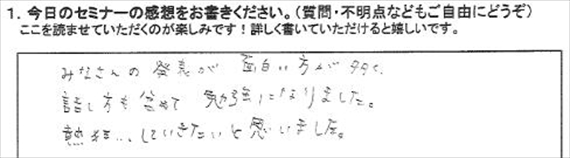 1. 今日のセミナーの感想をお書きください。（質問・不明点などもご自由にどうぞ）
ここを読ませていただくのが楽しみです！詳しく書いていただけると嬉しいです。
みなさんの発表が面白い方が多く、
話し方も含めて勉強になりました。
していきたいと思いました。